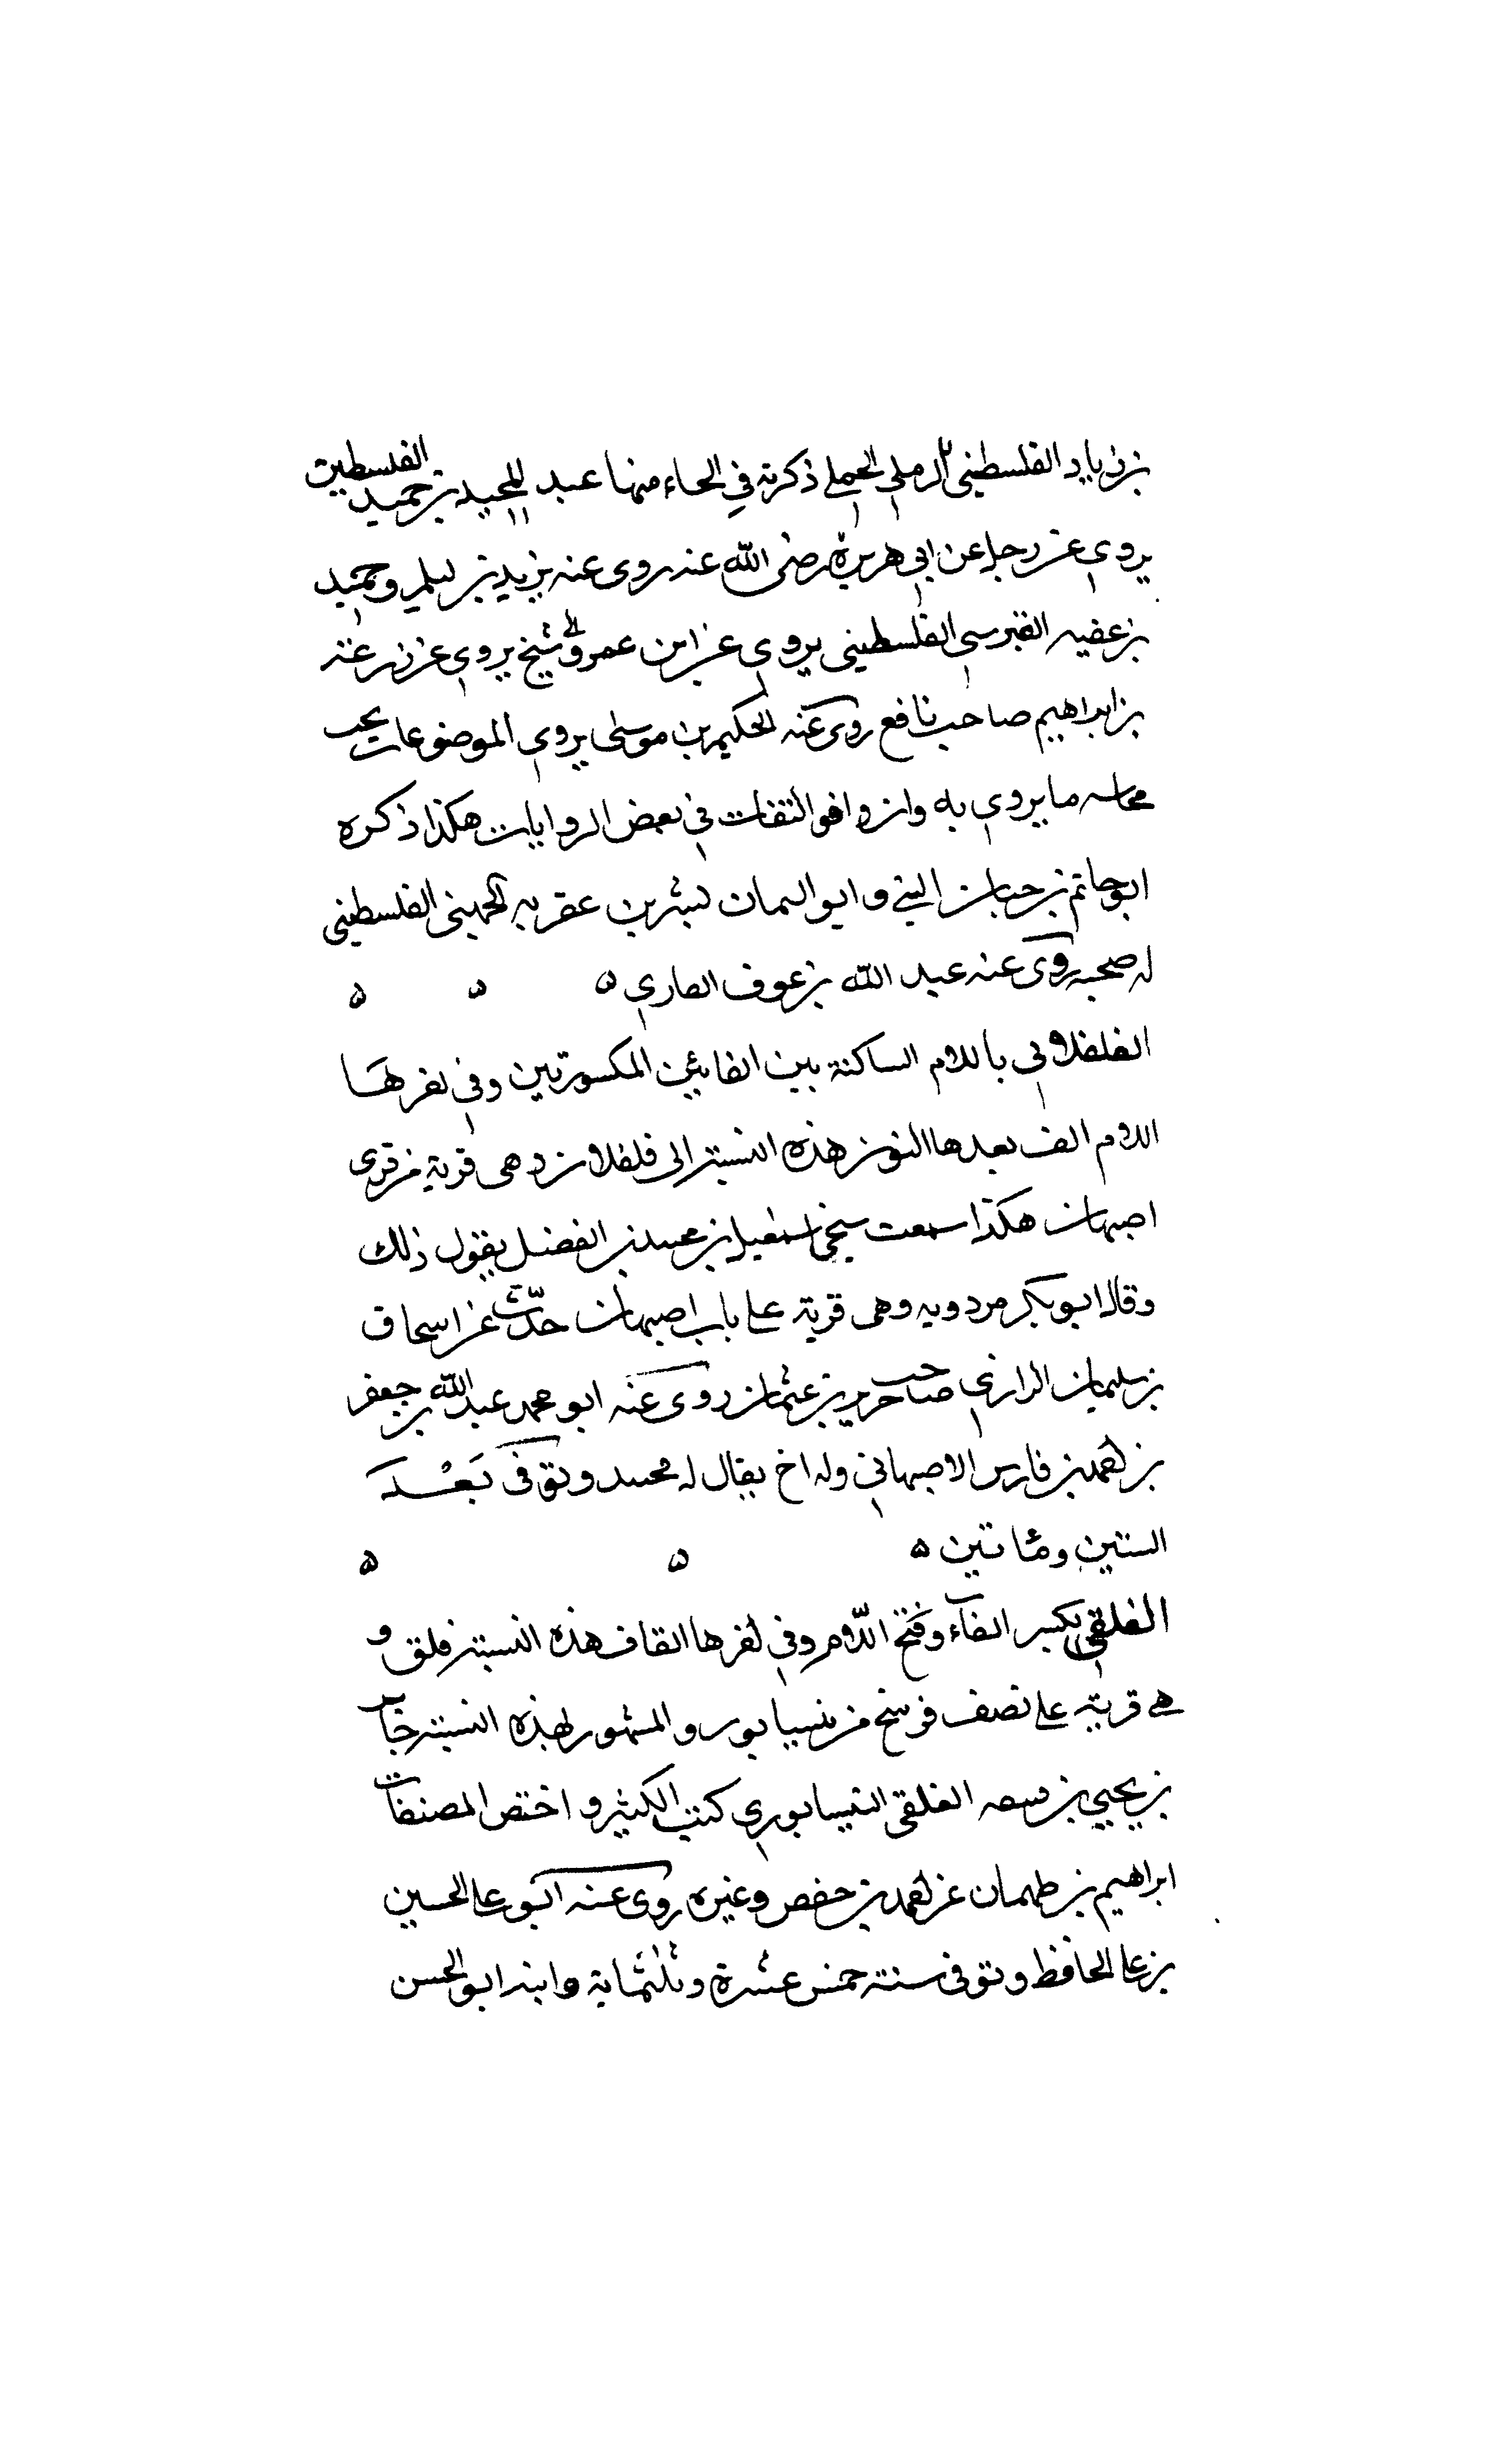 بن زياد الفلسطيني الرملي الحملي ذكرته في الحاء منها عبد المجيد بن حميد الفلسطيني
يروي عن رجل عن ابي هريرة رضى الله عنه روى عنه يزيد بن وحميد
بن عفيه القبرسي الفلسطيني يروي عن ابن عمرو شيخ يروي عن زرعة
بن ابراهيم صاحب نافع روى عنه الحكيم بن موسى يروي الموضوعات يجب
محاسه ما يروي به وان وافق الثقات في بعض الروايات هكذا ذكره
ابو حاتم بن حبان البستي وابو اليمان بشر بن عقربه الجهيني الفلسطيني
له صحبه روى عنه عبد الله بن عوف القاري ه ه ه
الفلفلاني باللام الساكنة بين الفائين المكسورتين وفي اخرها
اللام الف بعدها النون هذه النسبة الى فلفلان وهى قرية من قرى
اصبهان هكذا سمعت شيخي اسمعيل بن محمد بن الفضل يقول ذلك
وقال ابو بكر مردويه وهى قرية على باب اصبهان حدّث عن اسحاق
بن سليمان الرازي صاحب حريز بن عثمان روى عنه ابو محمد عبد الله بن جعفر
بن احمد بن فارس الاصبهاني وله اخ يقال له محمد وتوفى بَعْد
الستين ومئاتين ه ه ه
الفلقي بكسر الفآء وفتح اللّام وفي اخرها القاف هذه النسبة فلق و
هي قرية على نصف فرسخ من نيسابور والمشهور بهذه النسبة
بن يحيي بن الفلقى النيسابوري كتب الكثير و اختص المصنفات
ابراهيم بن طهمان عن احمد بن حفص وغيره روى عنه ابو على الحسين
بن على الحافظ وتوفى سنة خمس عشرة وثلثماية وابنه ابو الحسن